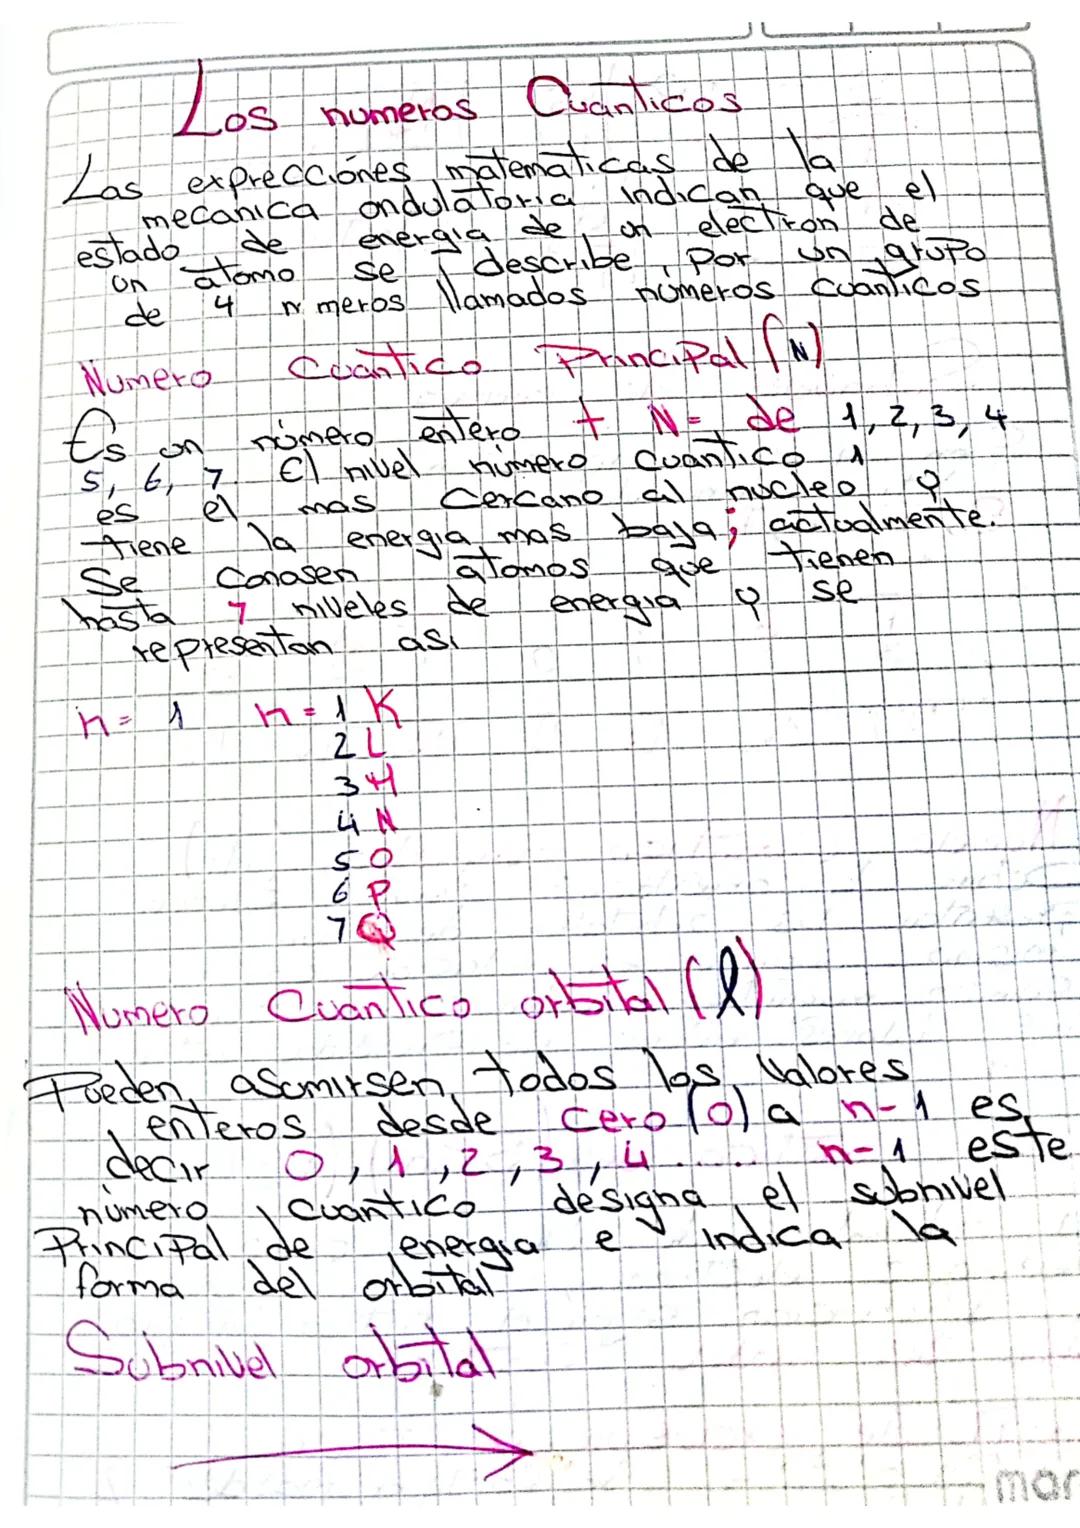 Los numeros Cuanticos
Las exprecciónes matematicas de la
mecanica ondulatoria indican que el
estado de energia de un electron de
un atomo se describe por un grupo
de 4 n meros llamados números cuanticos
Numero Cuantico Principal (N)
Es un número entero + N= de 1, 2, 3, 4
5, 6, 7. El nivel número cuantico 1
es el mas cercano al nucleo y
tiene la energia mas baja; actualmente.
Se Conosen atomos que tienen
hasta 7 niveles de energia y se
representan asi
n= 1 n=1 K
2 L
3 M
4 N
5 O
6 P
7 Q
Numero Cuantico orbital (l)
Pueden asumirsen todos los Valores
enteros desde cero (0) a n-1 es
decir 0, 1, 2, 3, 4...... n-1 este
número cuantico designa el subnivel
Principal de energia e indica la
forma del orbital
Subnivel orbital
mar